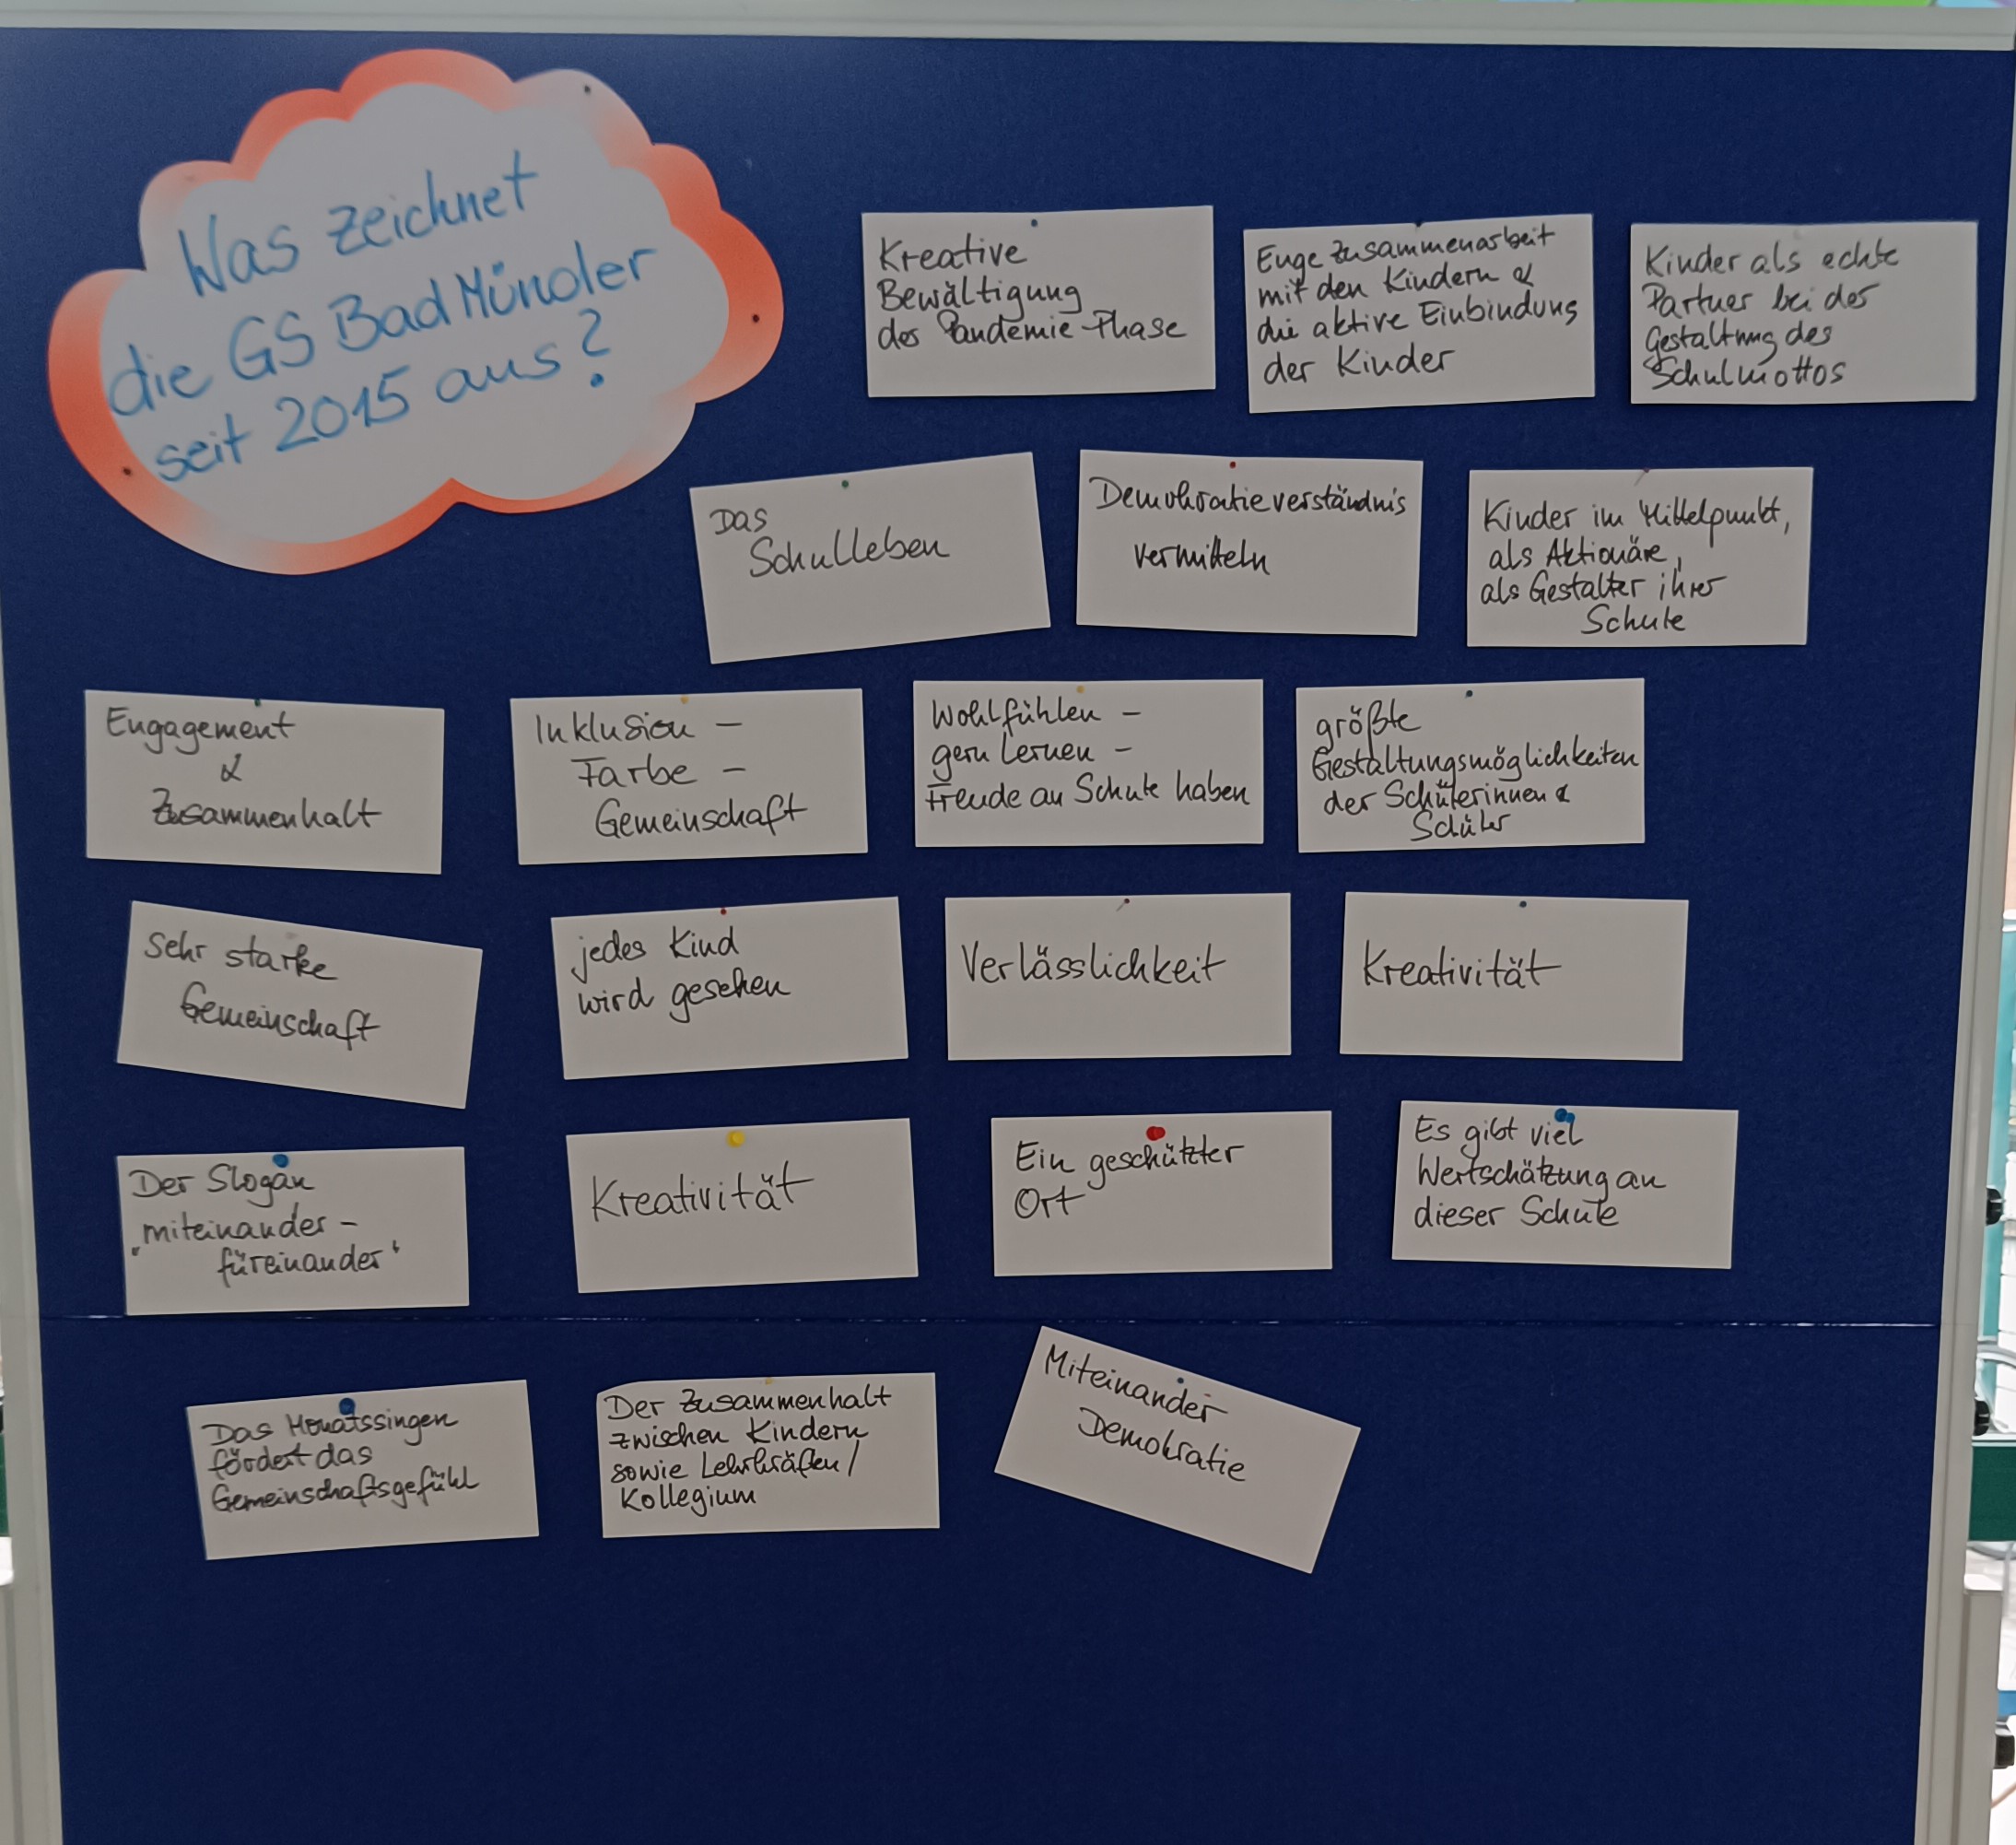 Was zeichnet
die GS Bad Münder
seit 2015 aus?
Kreative
Bewältigung
der Pandemie-Phase
Enge Zusammenarbeit
mit den Kindern &
die aktive Einbindung
der Kinder
Kinder als echte
Partner bei der
Gestaltung des
Schulmottos
Das
Schulleben
Demokratieverständnis
vermitteln
Kinder im Mittelpunkt,
als Aktionäre,
als Gestalter ihrer
Schule
Engagement
&
Zusammenhalt
Inklusion –
Farbe –
Gemeinschaft
Wohlfühlen –
gern Lernen –
Freude an Schule haben
größte
Gestaltungsmöglichkeiten
der Schülerinnen &
Schüler
Sehr starke
Gemeinschaft
jedes Kind
wird gesehen
Verlässlichkeit
Kreativität
Der Slogan
"miteinander –
füreinander"
Kreativität
Ein geschützter
Ort
Es gibt viel
Wertschätzung an
dieser Schule
Das Monatssingen
fördert das
Gemeinschaftsgefühl
Der Zusammenhalt
zwischen Kindern
sowie Lehrkräften/
Kollegium
Miteinander
Demokratie